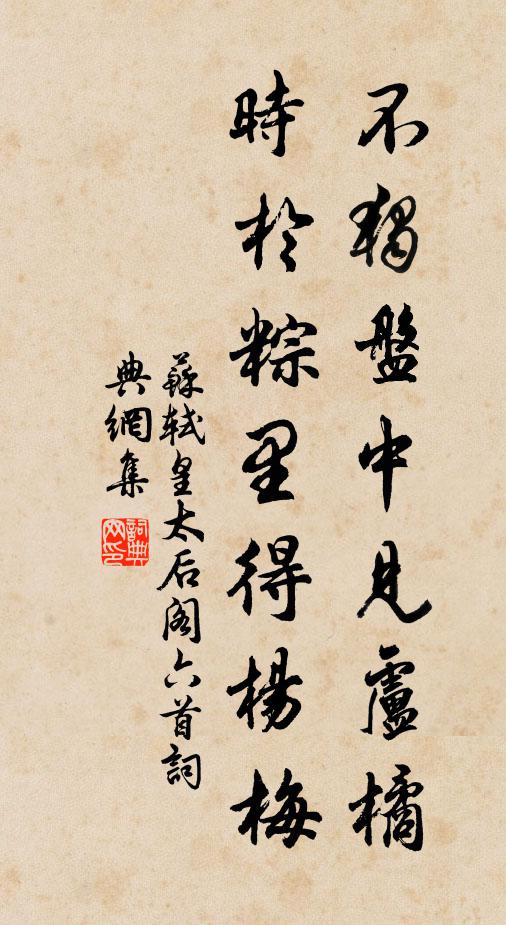 不獨盤中見盧橘
時於粽里得楊梅
蘇軾皇太后閣六首詞
典網集
詞典網印